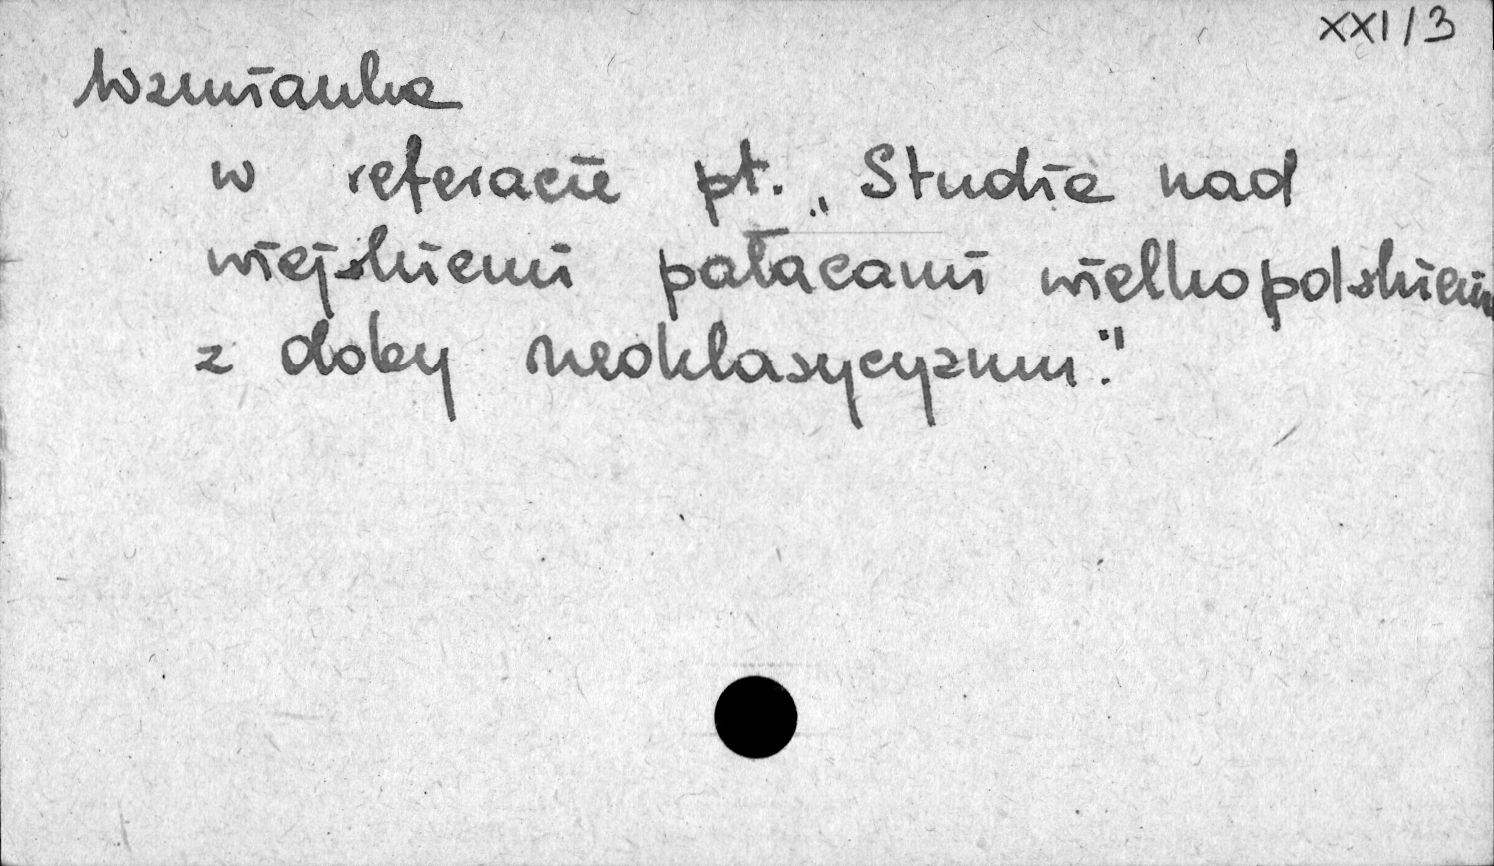 XXI/3
Wzmianka
w referacie pt. „Studia nad
wiejskiemi pałacami wielkopolskiemi
z doby neoklasycyzmu."